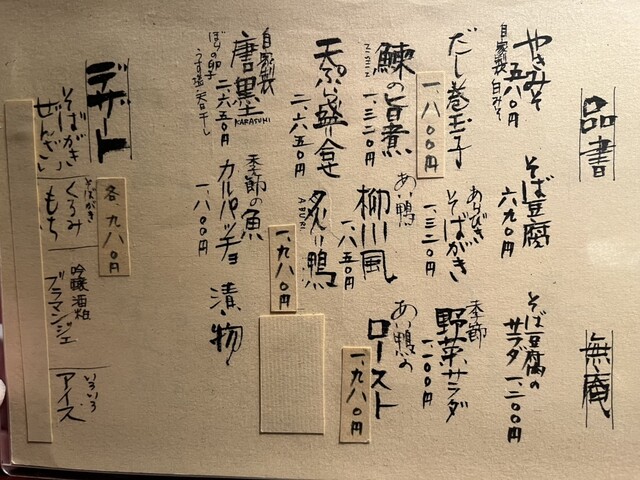 品書
無庵
やきみそ
自家製白みそ
五八〇円
そば豆腐
六九〇円
そば豆腐の
サラダ
一、二〇〇円
だし巻玉子
一、八〇〇円
あらびき
そばがき
一、三二〇円
季節
野菜サラダ
一、一〇〇円
鰊の旨煮
ニシン
一、三二〇円
あい鴨
柳川風
一、六五〇円
あい鴨の
ロースト
一、九八〇円
天ぷら盛合せ
二、六五〇円
炙り鴨
ABURI
一、九八〇円
自家製
唐墨
KARASUMI
ぼらの卵子
うす塩天日干し
二、六五〇円
季節の魚
カルパッチョ
一、八〇〇円
漬物
デザート
各、九八〇円
そばがき
ぜんざい
そばがき
くるみ
もち
吟醸酒粕
ブラマンジェ
いろいろ
アイス